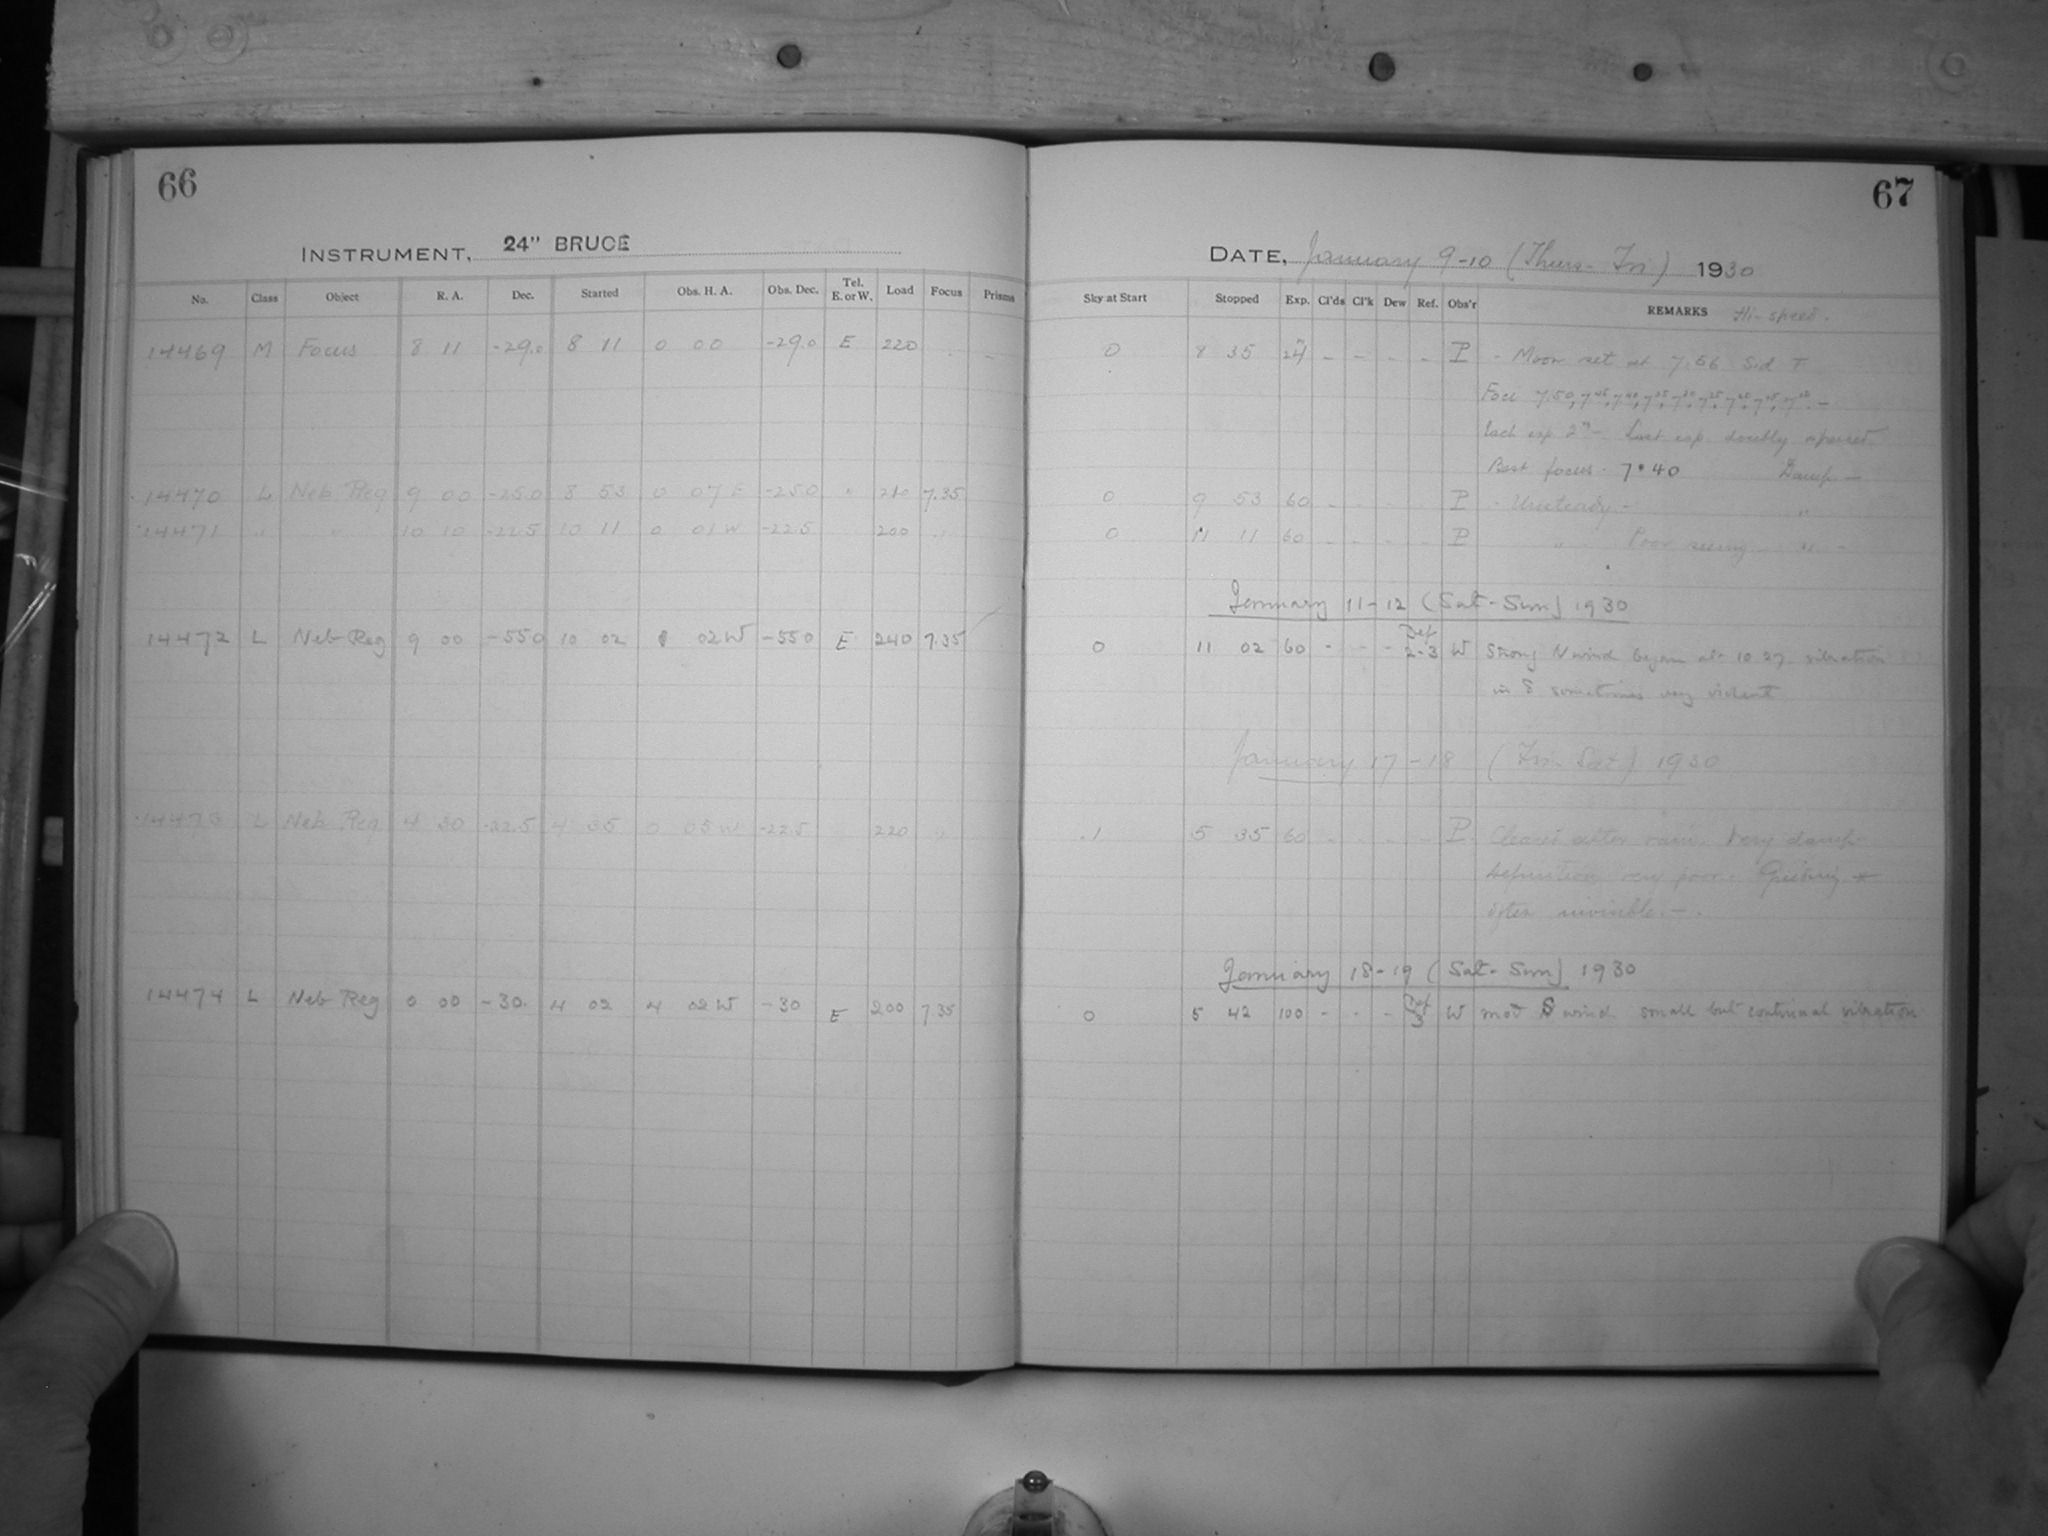 66
INSTRUMENT, 24" BRUCE
No. Class Object R. A. Dec. Started Obs. H. A. Obs. Dec. Tel. E. or W. Load Focus Prisms
14469 M Focus 8 11 -29.0 8 11 0 00 -29.0 E 220
14470 L Neb Reg 9 00 -25.0 8 53 0 07 E -25.0 " 210 7.35
14471 " " 10 10 -22.5 10 11 0 01 W -22.5 200 "
14472 L Neb Reg 9 00 -55 0 10 02 1 02 W -55 0 E 240 7.35
14473 L Neb Reg 4 30 -22.5 4 35 0 05 W -22.5 220 "
14474 L Neb Reg 0 00 -30. 4 02 4 02 W -30 E 200 7.35
67
DATE, January 9-10 (Thurs-Fri) 1930
Sky at Start Stopped Exp. Cl'ds Cl'k Dew Ref. Obs'r REMARKS Hi-speed.
0 8 35 24 - - - - P - Moon set at 7.56 Sid T
Foci 7.50, 7.45, 7.40, 7.35, 7.30, 7.25, 7.20, 7.15, 7.10. -
Each exp 2m - Last exp. doubly spaced
Best focus. 7.40 Damp -
0 9 53 60 - - - - P - Unsteady - "
0 11 11 60 - - - - P " Poor seeing - " -
January 11-12 (Sat-Sun) 1930
0 11 02 60 - - - Def 2-3 W Strong N wind began at 10 27 vibration
in δ sometimes very violent
January 17-18 (Fri-Sat) 1930
.1 5 35 60 - - - - P. Cleared after rain. Very damp-
Definition very poor. Guiding *
often invisible. -
January 18-19 (Sat-Sun) 1930
0 5 42 100 - - - Def 3 W mod S wind small but continual vibration